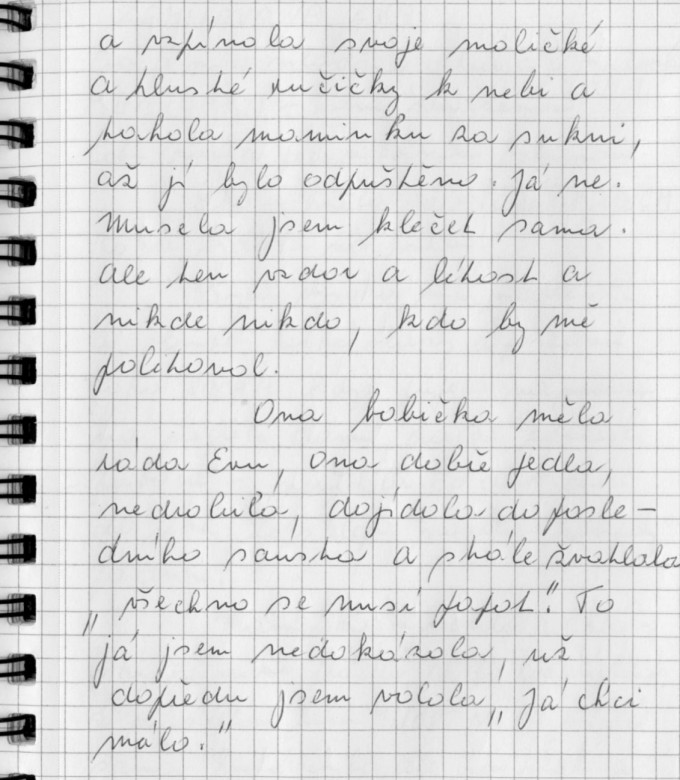 a vzpínala svoje maličké
a tlusté ručičky k nebi a
tahala maminku za sukni,
až jí bylo odpuštěno. Já ne.
Musela jsem klečet sama.
ale ten vzdor a lítost a
nikde nikdo, kdo by mě
politoval.
Ona babička měla
ráda Evu, ona dobře jedla,
nedrobila, dojídala do posle-
dního sousta a stále žvatlala
„všechno se musí papat“. To
já jsem nedokázala, už
dopředu jsem volala „Já chci
málo.“